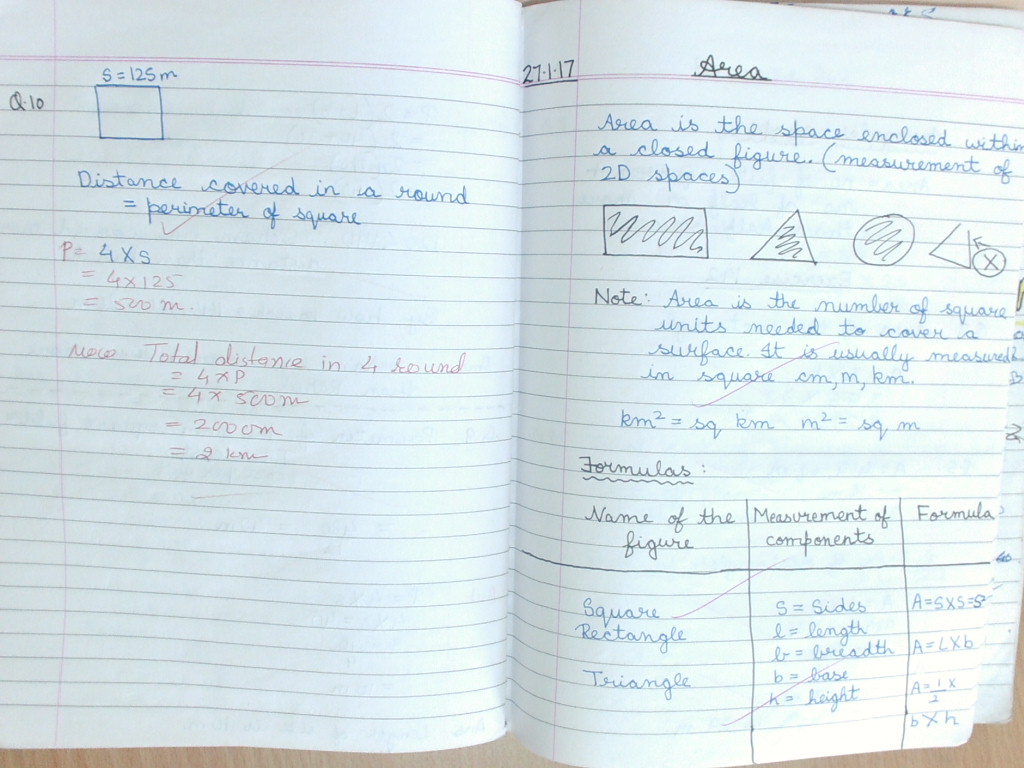 S = 125m
Q.10
Distance covered in a round
= perimeter of square
P = 4 X S
= 4 x 125
= 500 m.
Now Total distance in 4 round
= 4 x P
= 4 x 500m
= 2000m
= 2 km
27.1.17
Area
Area is the space enclosed within
a closed figure. (measurement of
2D spaces)
X
Note: Area is the number of square
units needed to cover a
surface. It is usually measured
in square cm, m, km.
km² = sq km m² = sq m
Formulas:
Name of the figure
Measurement of components
Formula
Square S = Sides A = S X S = S²
Rectangle l = length
b = breadth A = L X b
Triangle b = base
h = height A = 1/2 x
b X h